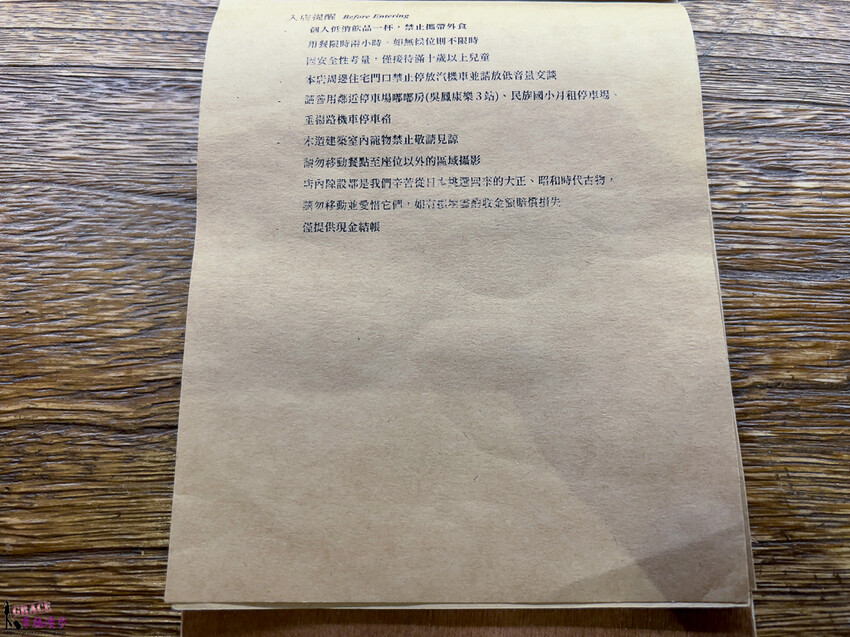 入店提醒 Before Entering
個人低消飲品一杯，禁止攜帶外食
用餐限時兩小時，如無候位則不限時
因安全性考量，僅接待滿十歲以上兒童
本店周邊住宅門口禁止停放汽機車並請放低音量交談
請善用鄰近停車場嘟嘟房(吳鳳康樂3站)、民族國小月租停車場、
垂楊路機車停車格
木造建築室內寵物禁止敬請見諒
請勿移動餐點至座位以外的區域攝影
店內陳設都是我們辛苦從日本挑選回來的大正、昭和時代古物，
請勿移動並愛惜它們，如有損壞需酌收金額賠償損失
僅提供現金結帳
GRACE